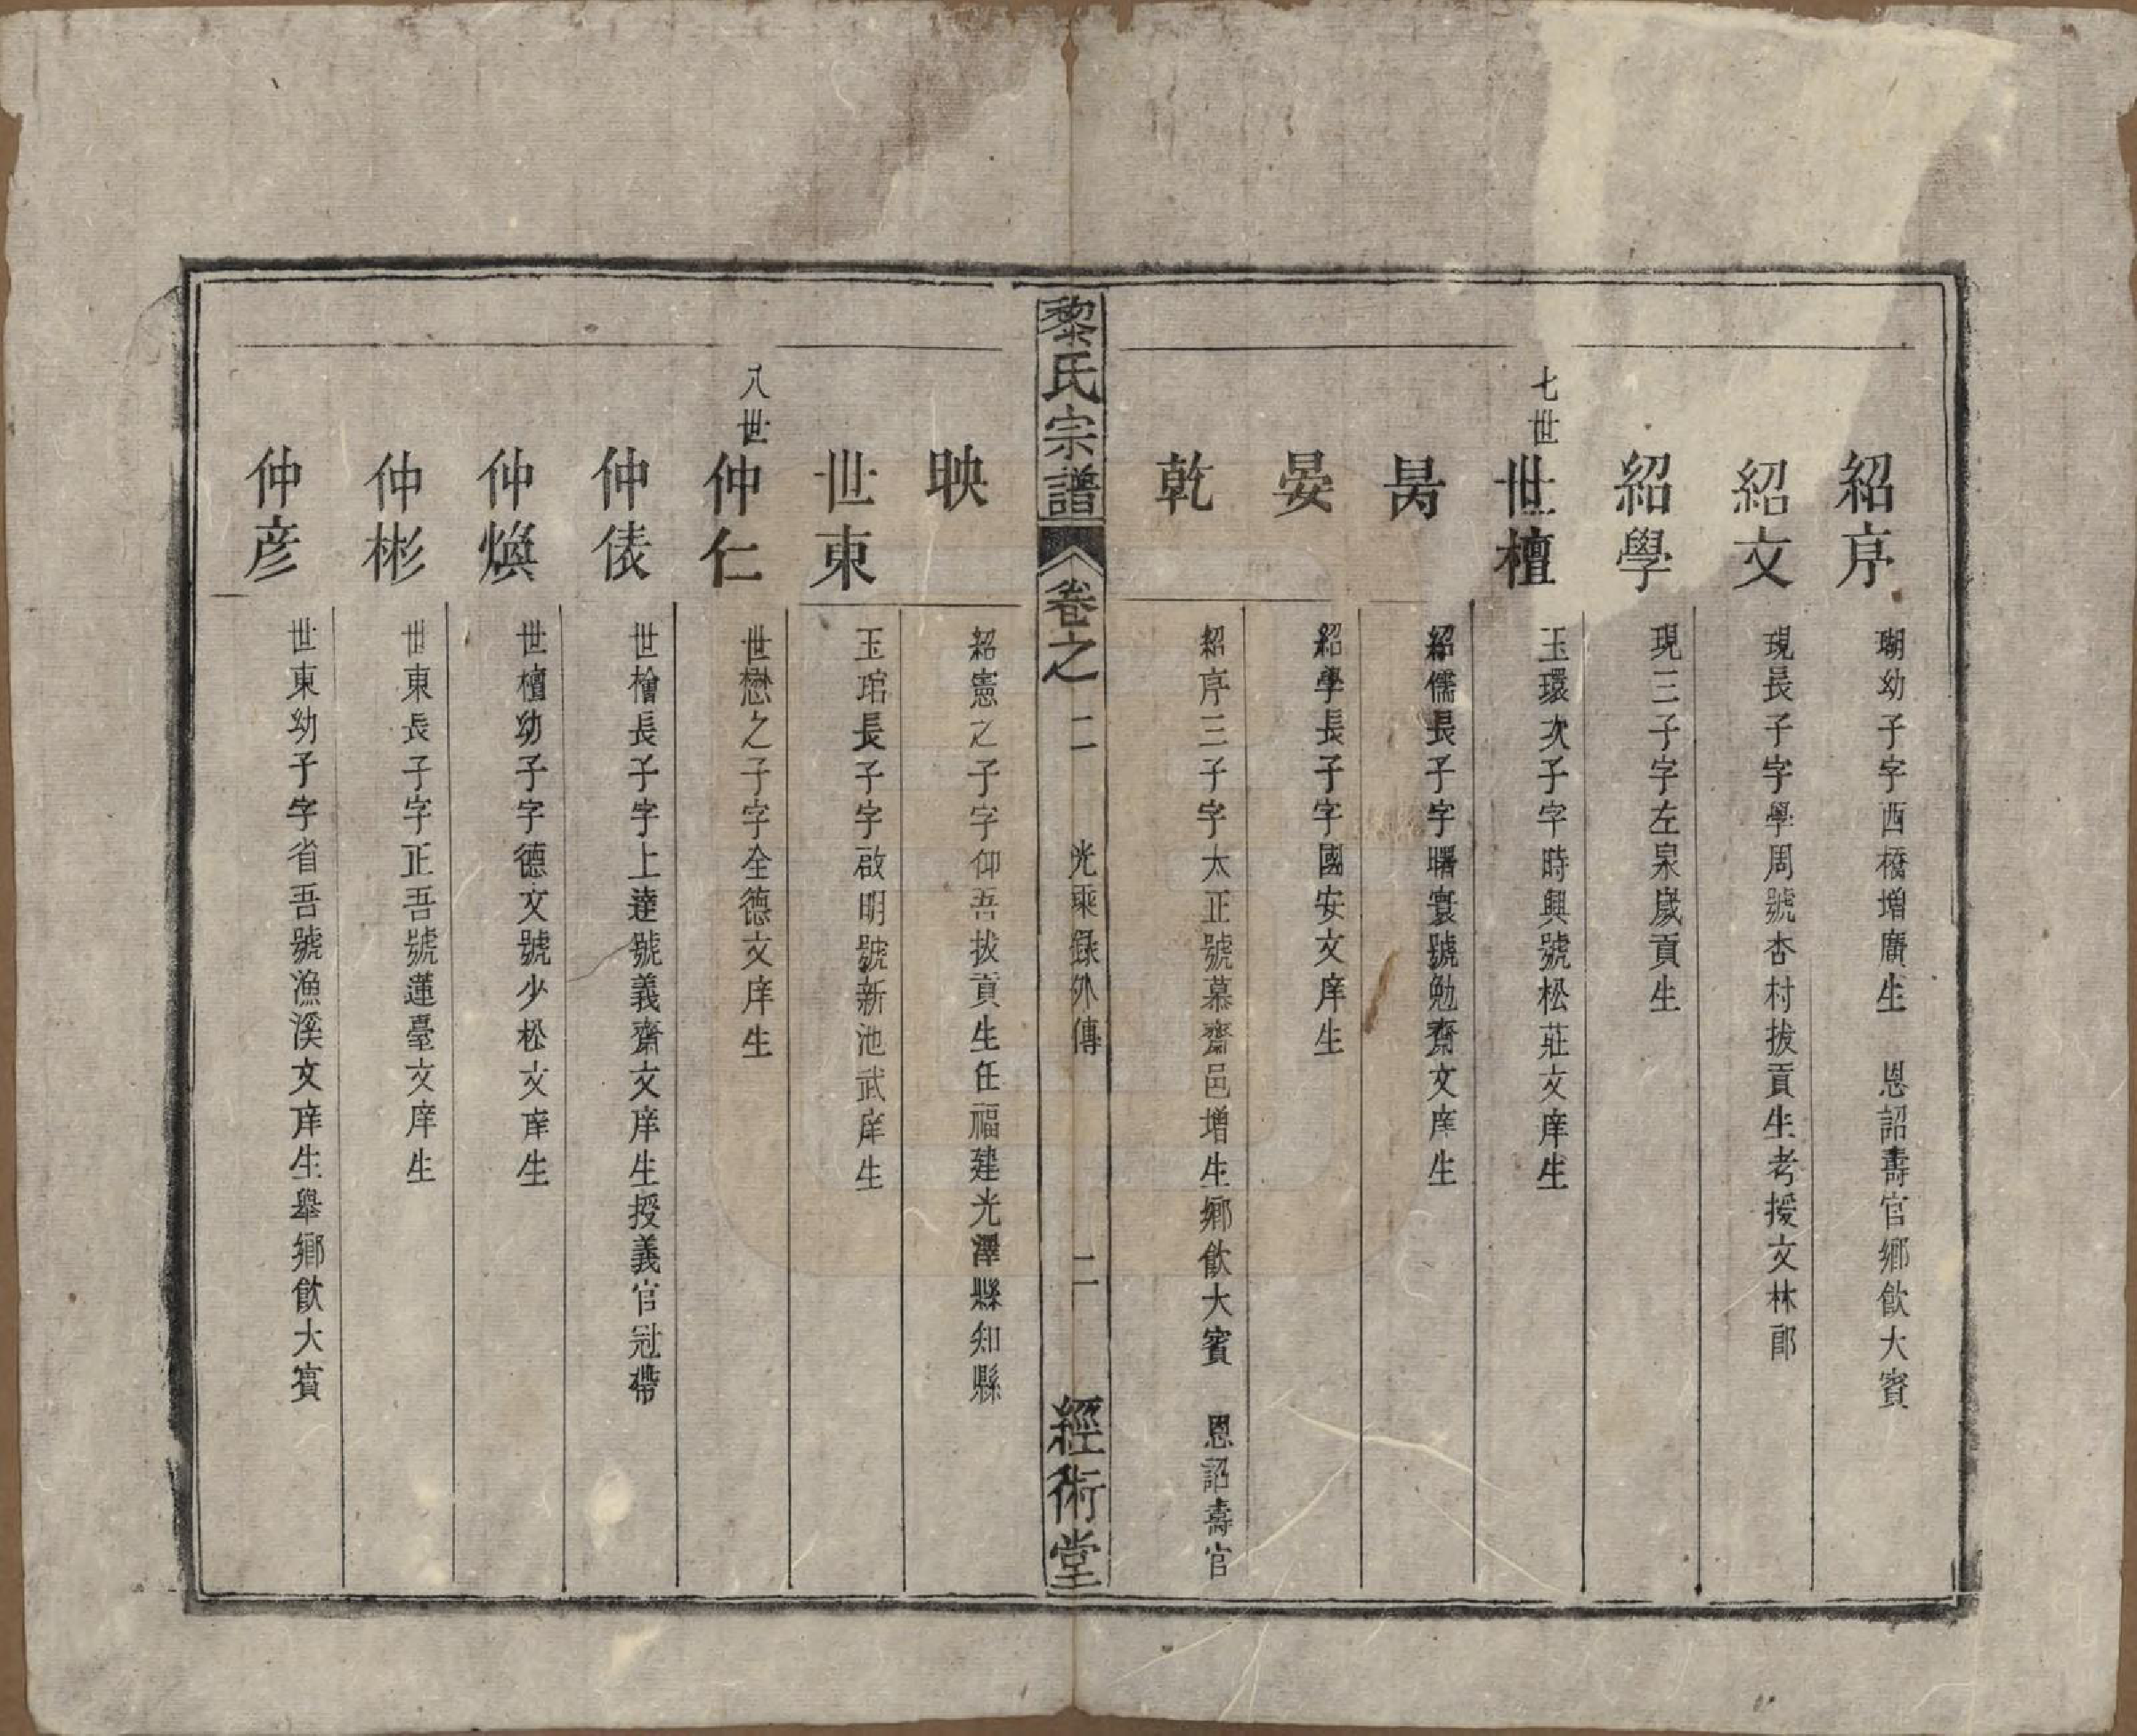 紹序 瑚幼子字西橋增廣生 恩詔壽官鄉飲大賓
紹文 現長子字學周號杏村拔貢生考授文林郎
紹學 現三子字左泉歲貢生
七世
世檀 玉環次子字時興號松莊文庠生
昺 紹儒長子字曙寰號勉齋文庠生
晏 紹學長子字國安文庠生
乾 紹序三子字太正號慕齋邑增生鄉飲大賓 恩詔壽官
黎氏宗譜 卷之二 光乘錄外傳 二 經術堂
映 紹憲之子字仰吾拔貢生任福建光澤縣知縣
世東 玉琯長子字啟明號新池武庠生
八世
仲仁 世懋之子字全德文庠生
仲俵 世檜長子字上達號義齋文庠生授義官冠帶
仲煥 世檀幼子字德文號少松文庠生
仲彬 世東長子字正吾號蓮臺文庠生
仲彦 世東幼子字省吾號漁溪文庠生舉鄉飲大賓